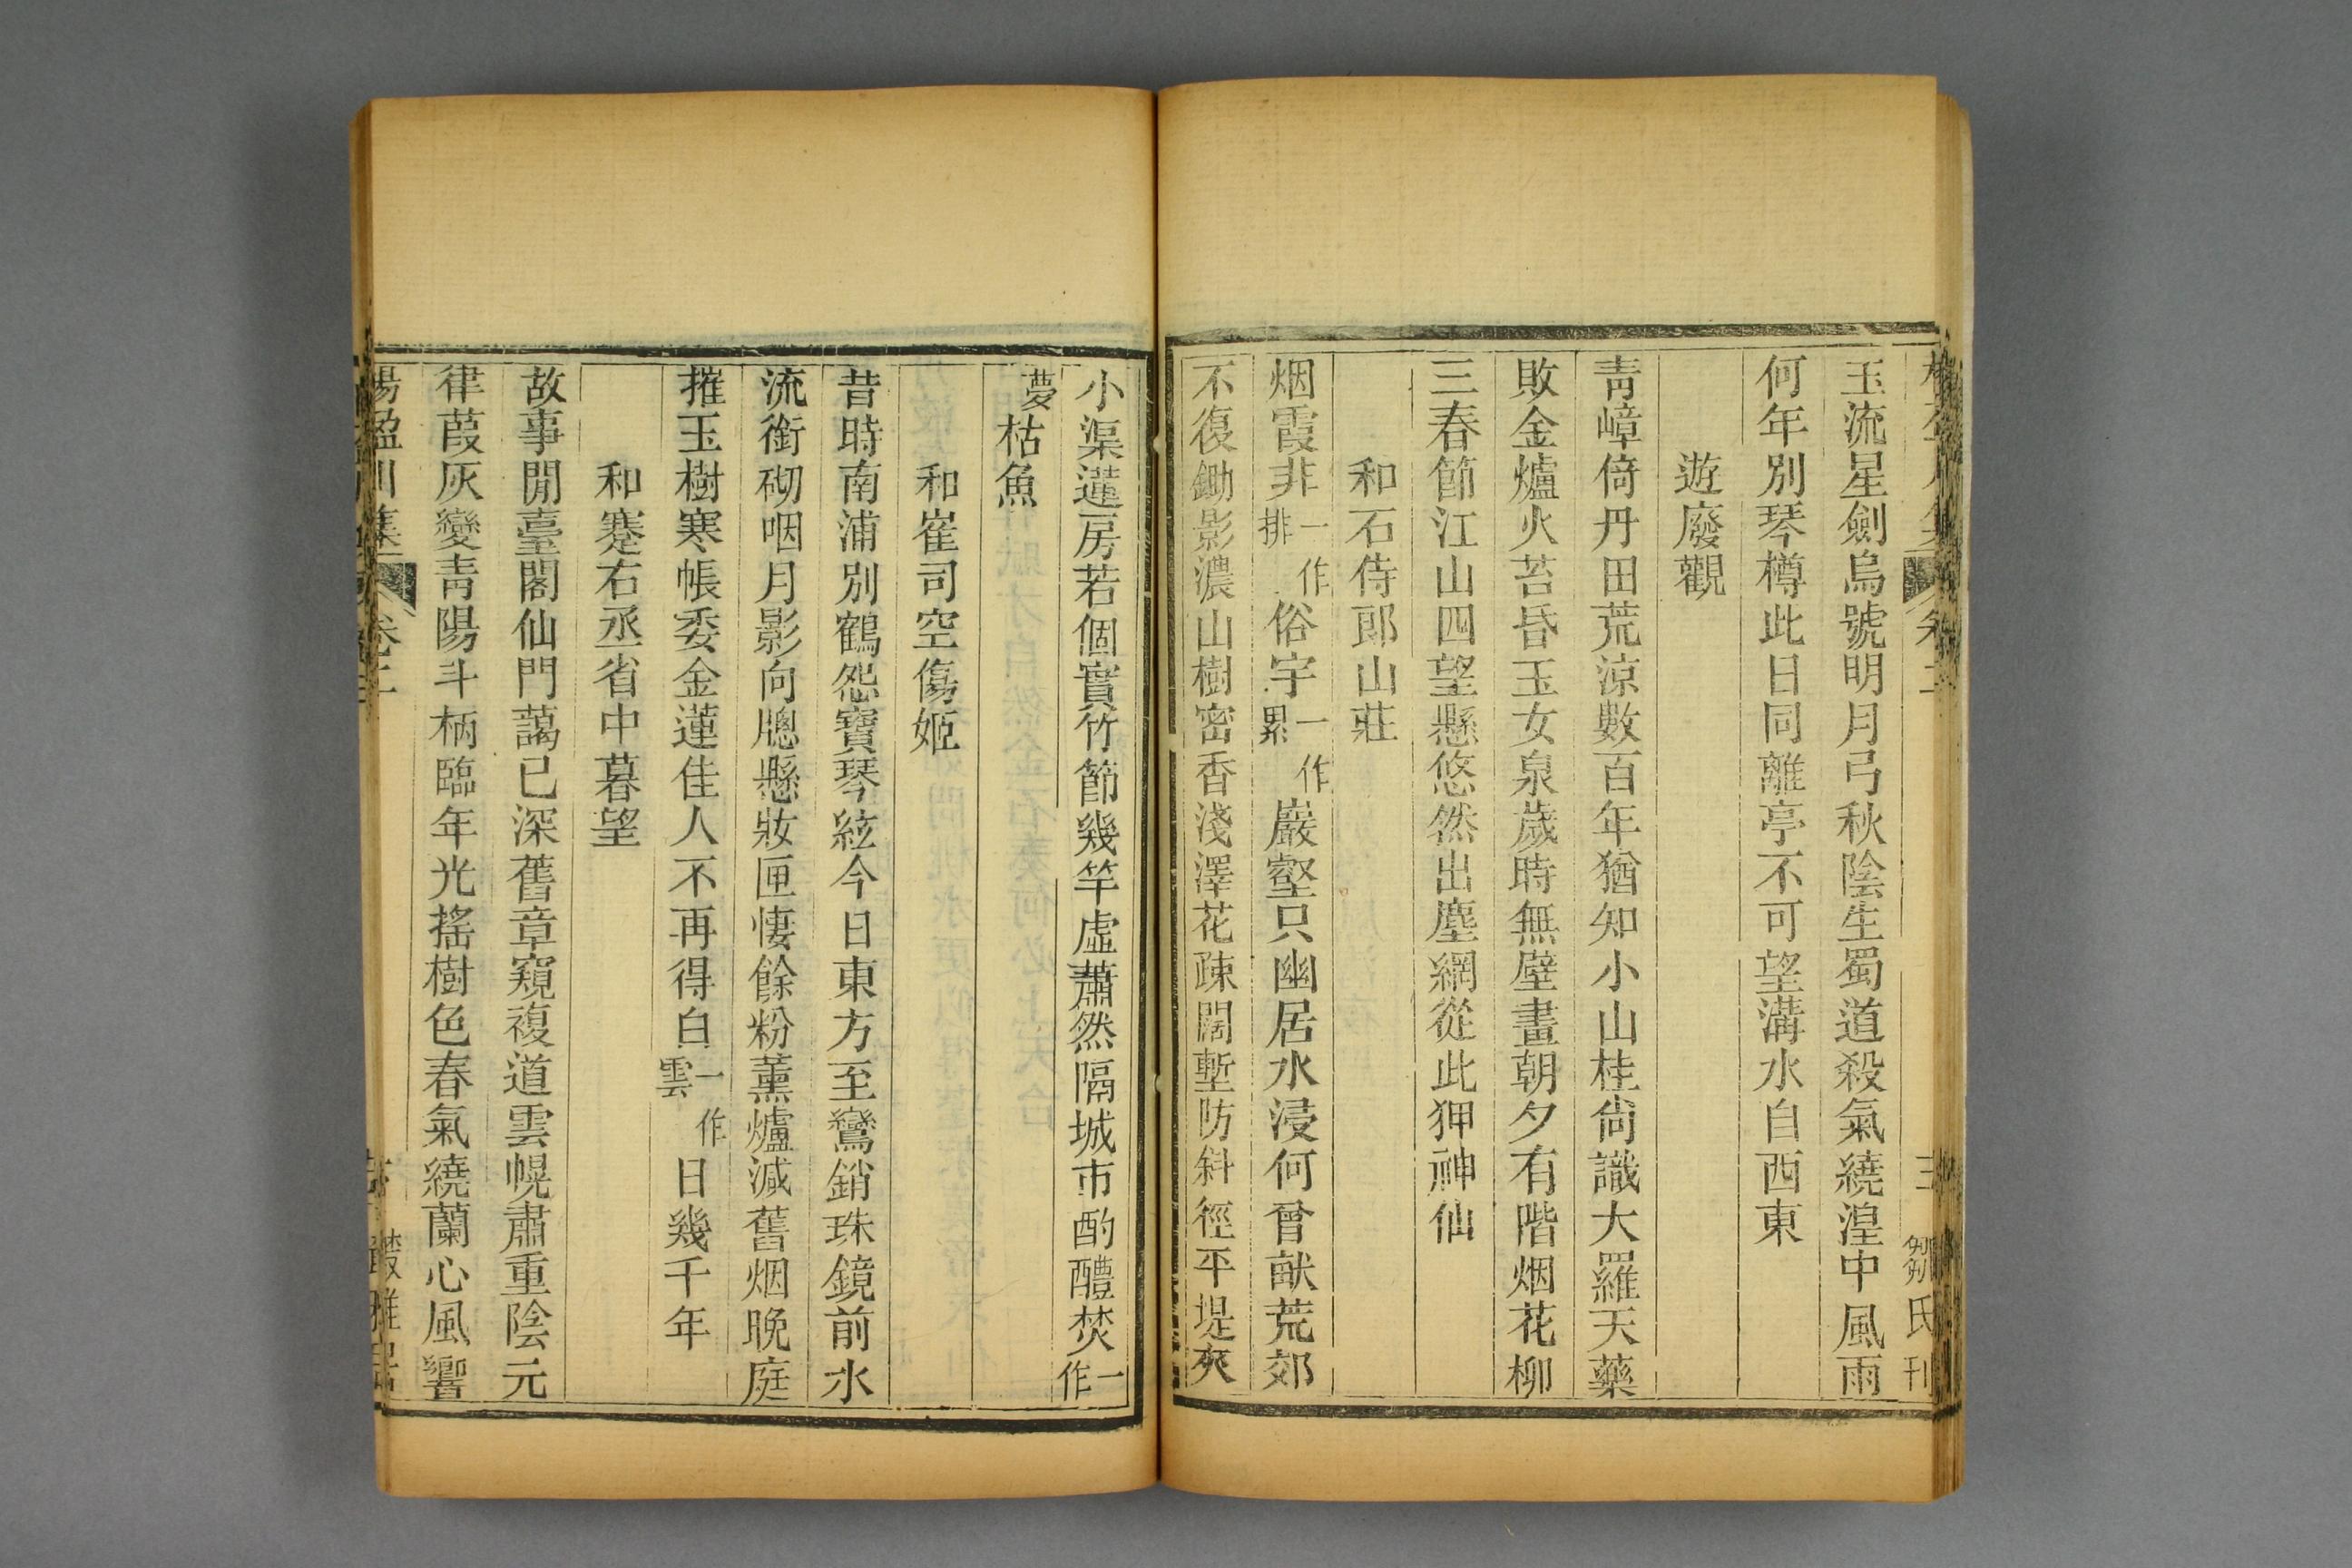 三 鄒氏刊
玉流星劍烏號明月弓秋陰生蜀道殺氣繞湟中風雨
何年別琴樽此日同離亭不可望溝水自西東
遊廢觀
青嶂倚丹田荒涼數百年猶知小山桂尙識大羅天藥
敗金爐火苔昏玉女泉歲時無壁畫朝夕有階烟花柳
三春節江山四望懸悠然出塵網從此狎神仙
和石侍郎山莊
烟霞非一作排俗宇一作累巖壑只幽居水浸何曾畎荒郊
不復鋤影濃山樹密香淺澤花疎闊塹防斜徑平堤夾
小渠蓮房若個實竹節幾竿虛蕭然隔城市酌醴焚一作
夢枯魚
和崔司空傷姬
昔時南浦別鶴怨寶琴絃今日東方至鸞銷珠鏡前水
流銜砌咽月影向牕懸妝匣悽餘粉薰爐滅舊烟晚庭
摧玉樹寒帳委金蓮佳人不再得白一作雲日幾千年
和蹇右丞省中暮望
故事閒臺閣仙門藹已深舊章窺複道雲幌肅重陰元
律葭灰變青陽斗柄臨年光搖樹色春氣繞蘭心風響
楊盈川集 卷二 叢雅居